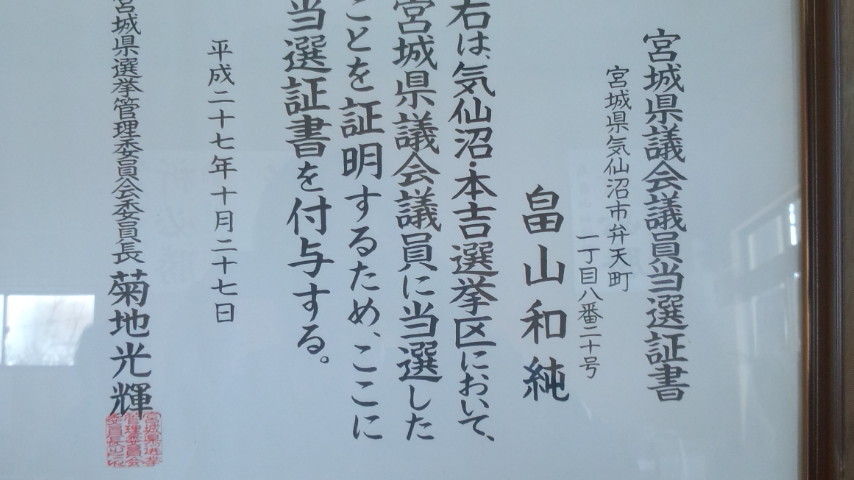 宮城県議会議員当選証書
宮城県気仙沼市弁天町
一丁目八番二十号
畠山和純
右は、気仙沼・本吉選挙区において、
宮城県議会議員に当選した
ことを証明するため、ここに
当選証書を付与する。
平成二十七年十月二十七日
宮城県選挙管理委員会委員長 菊地光輝
宮城県選挙
管理委員会
委員長之印